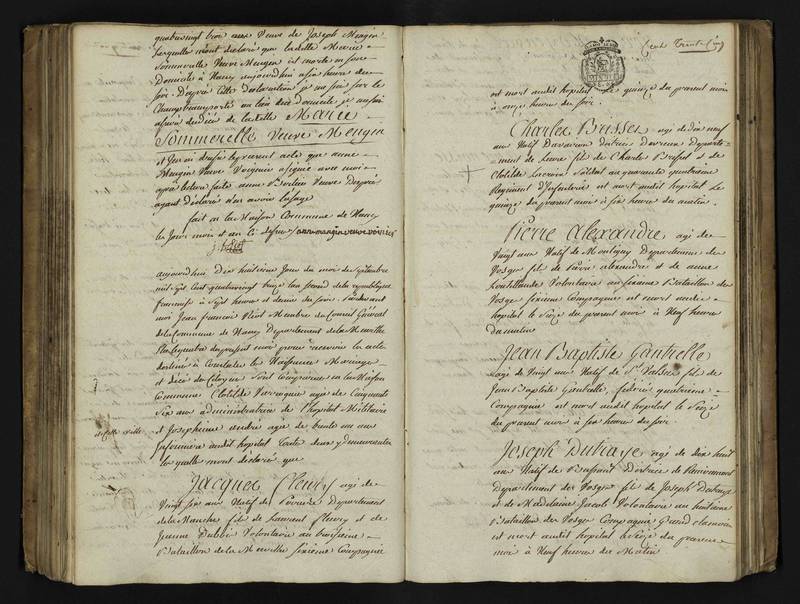 quatrevingt trois aux Veuve de Joseph Mengin
laquelle m'ont déclaré que ladite Marie
Sommerelle Veuve Mengin est morte en son
Domicile à Nancy aujourdhui a six heure du
soir. D'après cette déclaration je me suis sur le
Champ transporté au lieu dudit Domicile je me suis
assuré du décès de ladite Marie
Sommerelle Veuve Mengin
et j'en ai dressé le present acte que anne
Mengin Veuve Voirinier a signé avec moi
après lecture faite anne Veuve
ayant déclaré n'en avoir l'usage
fait en la Maison Commune de Nancy
les Jour mois et an
aujourdhui Dix huitieme Jour du mois de Septembre
mil sept cent quatrevingt treize l'an second de la république
française à sept heures et demie du soir. Pardevant
moi Jean francois Membre du Conseil Général
de la Commune de Nancy Departement de la Meurthe
du present mois pour recevoir les actes
destinés à Constater les Naissances Mariages
et décès des Citoyens sont Comparus en la Maison
Commune Clotilde agée de Cinquante
Six ans administratrice de l'hopital Militaire
de cette Ville
et Josephine andré agée de trente un ans
infirmiere audit hopital toutes deux y demeurantes
lesquelles m'ont déclaré que
Jacques Fleury agé de
Vingt six ans Natif de Departement
de la Manche fils de Laurent fleury et de
Jeanne Dubbé Volontaire au troisième
Bataillon de la Meurthe sixieme Compagnie
Cent Trente
est mort audit hopital le quinze du present mois
à onze heures du soir.
Charles Brisset agé de dix neuf
ans Natif Davairon district devreux Departe-
ment de Leure fils de Charles Brisset et de
Clotilde Soldat au quarante quatrieme
Regiment d'Infanterie est mort audit hopital le
quinze du present mois à six heures du matin.
Pierre Alexandre agé de
Vingt ans Natif de Montigny Departement des
Vosges fils de Pierre alexandre et de anne
Volontaire au sixieme Bataillon des
Vosges sixieme Compagnie est mort audit
hopital le Seize du present mois à Neuf heures
du matin
Jean Baptiste Gantrelle
agé de Vingt ans Natif de St fils de
Jean Baptiste Gantrelle, fédéré quatrième
Compagnie est mort audit hopital le Seize
du present mois à six heures du soir
Joseph Dubraye agé de dix huit
ans Natif de Bussant District de Remiremont
Departement des Vosges fils de Joseph Dubraye
et de Madelaine Jacob Volontaire au huitieme
Bataillon des Vosges Compagnie Grand
est mort audit hopital le Seize du present
mois à Neuf heures du Matin